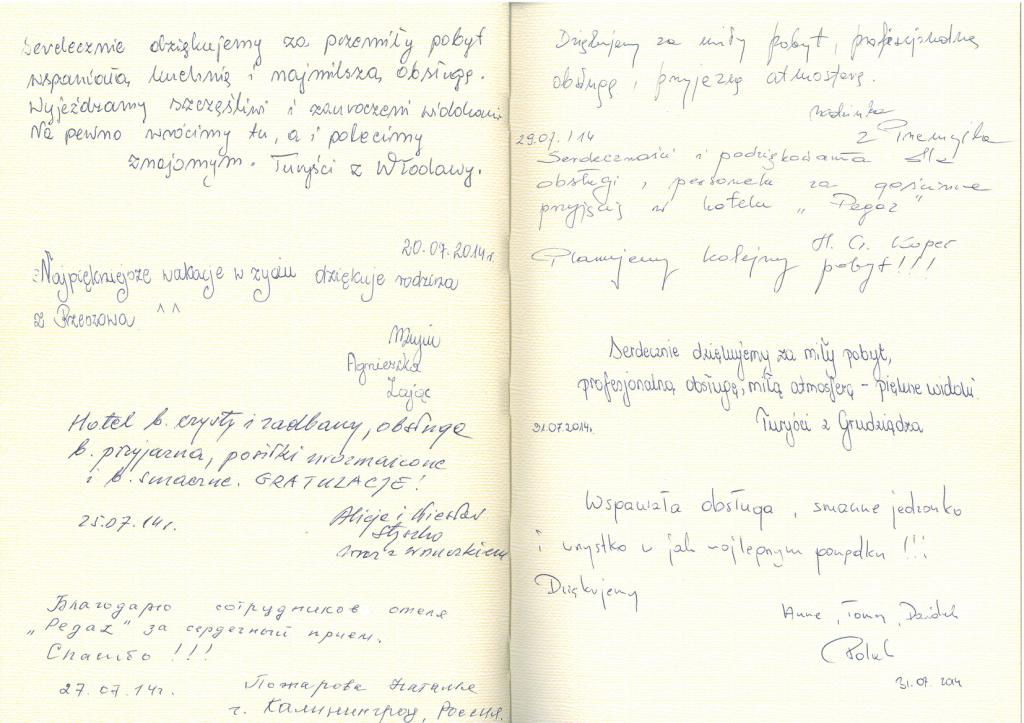 Serdecznie dziękujemy za przemiły pobyt
wspaniałą kuchnię i najmilszą obsługę.
Wyjeżdżamy szczęśliwi i zauroczeni widokami
Na pewno wrócimy tu, a i polecimy
znajomym. Turyści z Włodawy.
20.07.2014r.
Najpiękniejsze wakacje w życiu dziękuje rodzina
z Rzeszowa ^^
Agnieszka
Zając
Hotel b. czysty i zadbany, obsługa
b. przyjazna, posiłki urozmaicone
i b. smaczne. GRATULACJE!
25.07.14r.
Alicja i Wiesław
wraz z wnuczkiem
Благодарю сотрудников отеля
„Pegaz" за сердечный прием.
Спасибо !!!
27.07.14г.
Пожарова Наталья
г. Калининград, Россия.
Dziękujemy za miły pobyt, profesjonalną
obsługę, przyjazną atmosferę.
rodzinka
29.07./14
z Przemyśla
Serdeczności i podziękowania dla
obsługi, personelu za gościnne
przyjęcie w hotelu „Pegaz"
H. G. Koper
Planujemy kolejny pobyt!!!
Serdecznie dziękujemy za miły pobyt,
profesjonalną obsługę, miłą atmosferę - piękne widoki.
31.07.2014r.
Turyści z Grudziądza
Wspaniała obsługa, smaczne jedzonko
i wszystko w jak najlepszym porządku !!!
Dziękujemy
Anna, Tomy, Dawid
31.07.2014